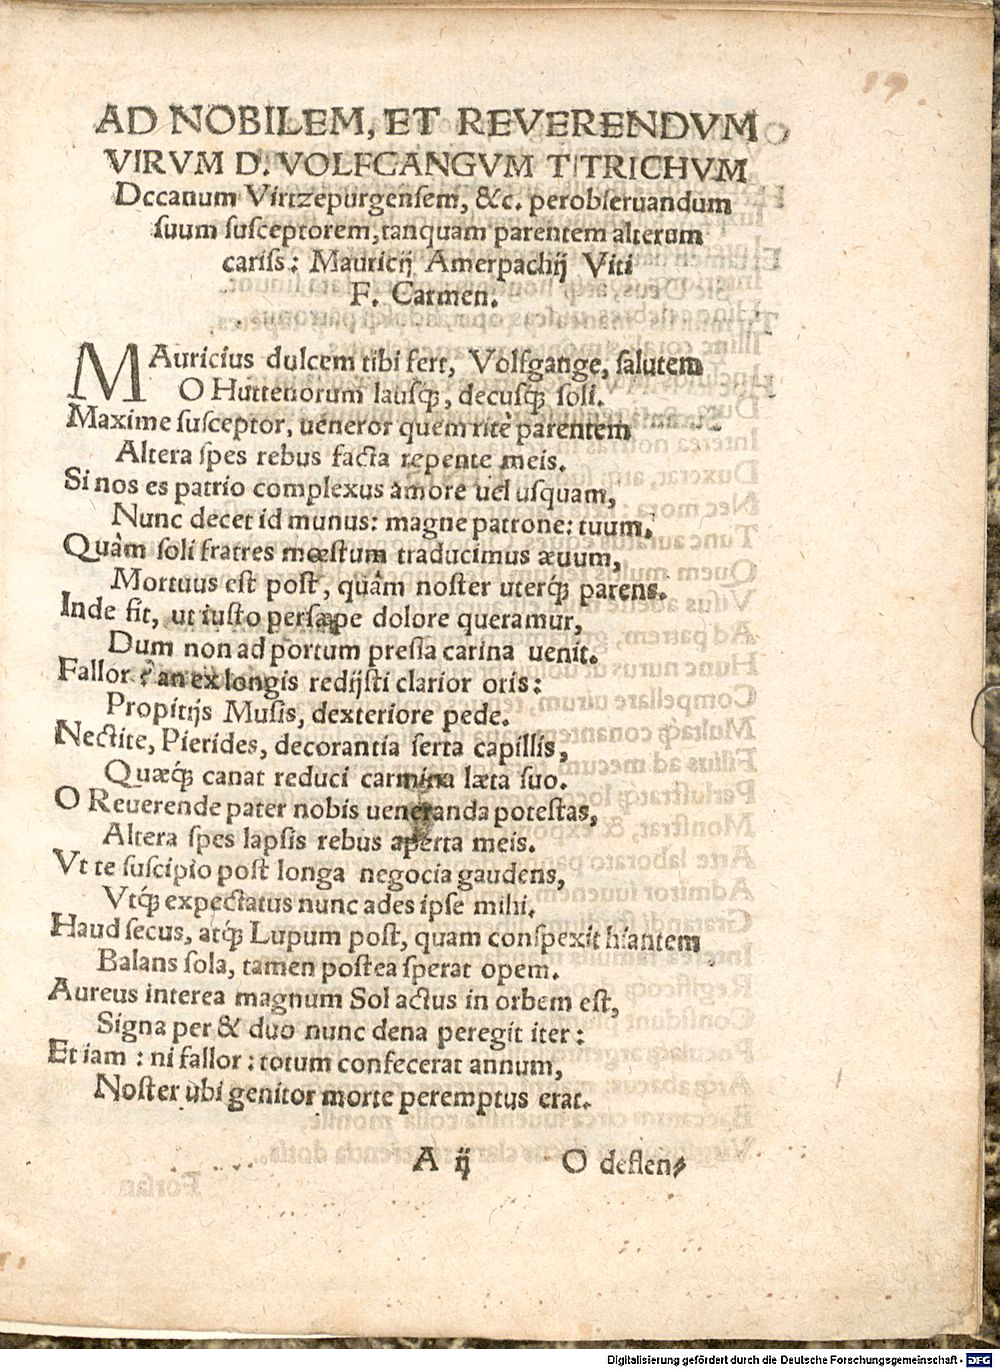 19.
AD NOBILEM, ET REVERENDVM
VIRVM D. VOLFGANGVM TITRICHVM
Decanum Virtzepurgensem, &c. perobseruandum
suum susceptorem, tanquam parentem alterum
cariss: Mauricij Amerpachij Viti
F. Carmen.
MAuricius dulcem tibi fert, Volfgange, salutem
O Huttenorum lausq́;, decusq́; soli.
Maxime susceptor, ueneror quem ritè parentem
Altera spes rebus facta repente meis.
Si nos es patrio complexus amore uel usquam,
Nunc decet id munus: magne patrone: tuum.
Quàm soli fratres mœstum traducimus æuum,
Mortuus est post, quàm noster uterq́; parens.
Inde fit, ut iusto persæpe dolore queramur,
Dum non ad portum pressa carina uenit.
Fallor? an ex longis redijsti clarior oris:
Propitijs Musis, dexteriore pede.
Nectite, Pierides, decorantia serta capillis,
Quæq́; canat reduci carmina læta suo.
O Reuerende pater nobis ueneranda potestas,
Altera spes lapsis rebus aperta meis.
Vt te suscipio post longa negocia gaudens,
Vtq́; expectatus nunc ades ipse mihi.
Haud secus, atq́; Lupum post, quam conspexit hiantem
Balans sola, tamen postea sperat opem.
Aureus interea magnum Sol actus in orbem est,
Signa per & duo nunc dena peregit iter:
Et iam: ni fallor: totum confecerat annum,
Noster ubi genitor morte peremptus erat.
A ij O deflen-
Digitalisierung gefördert durch die Deutsche Forschungsgemeinschaft - DFG